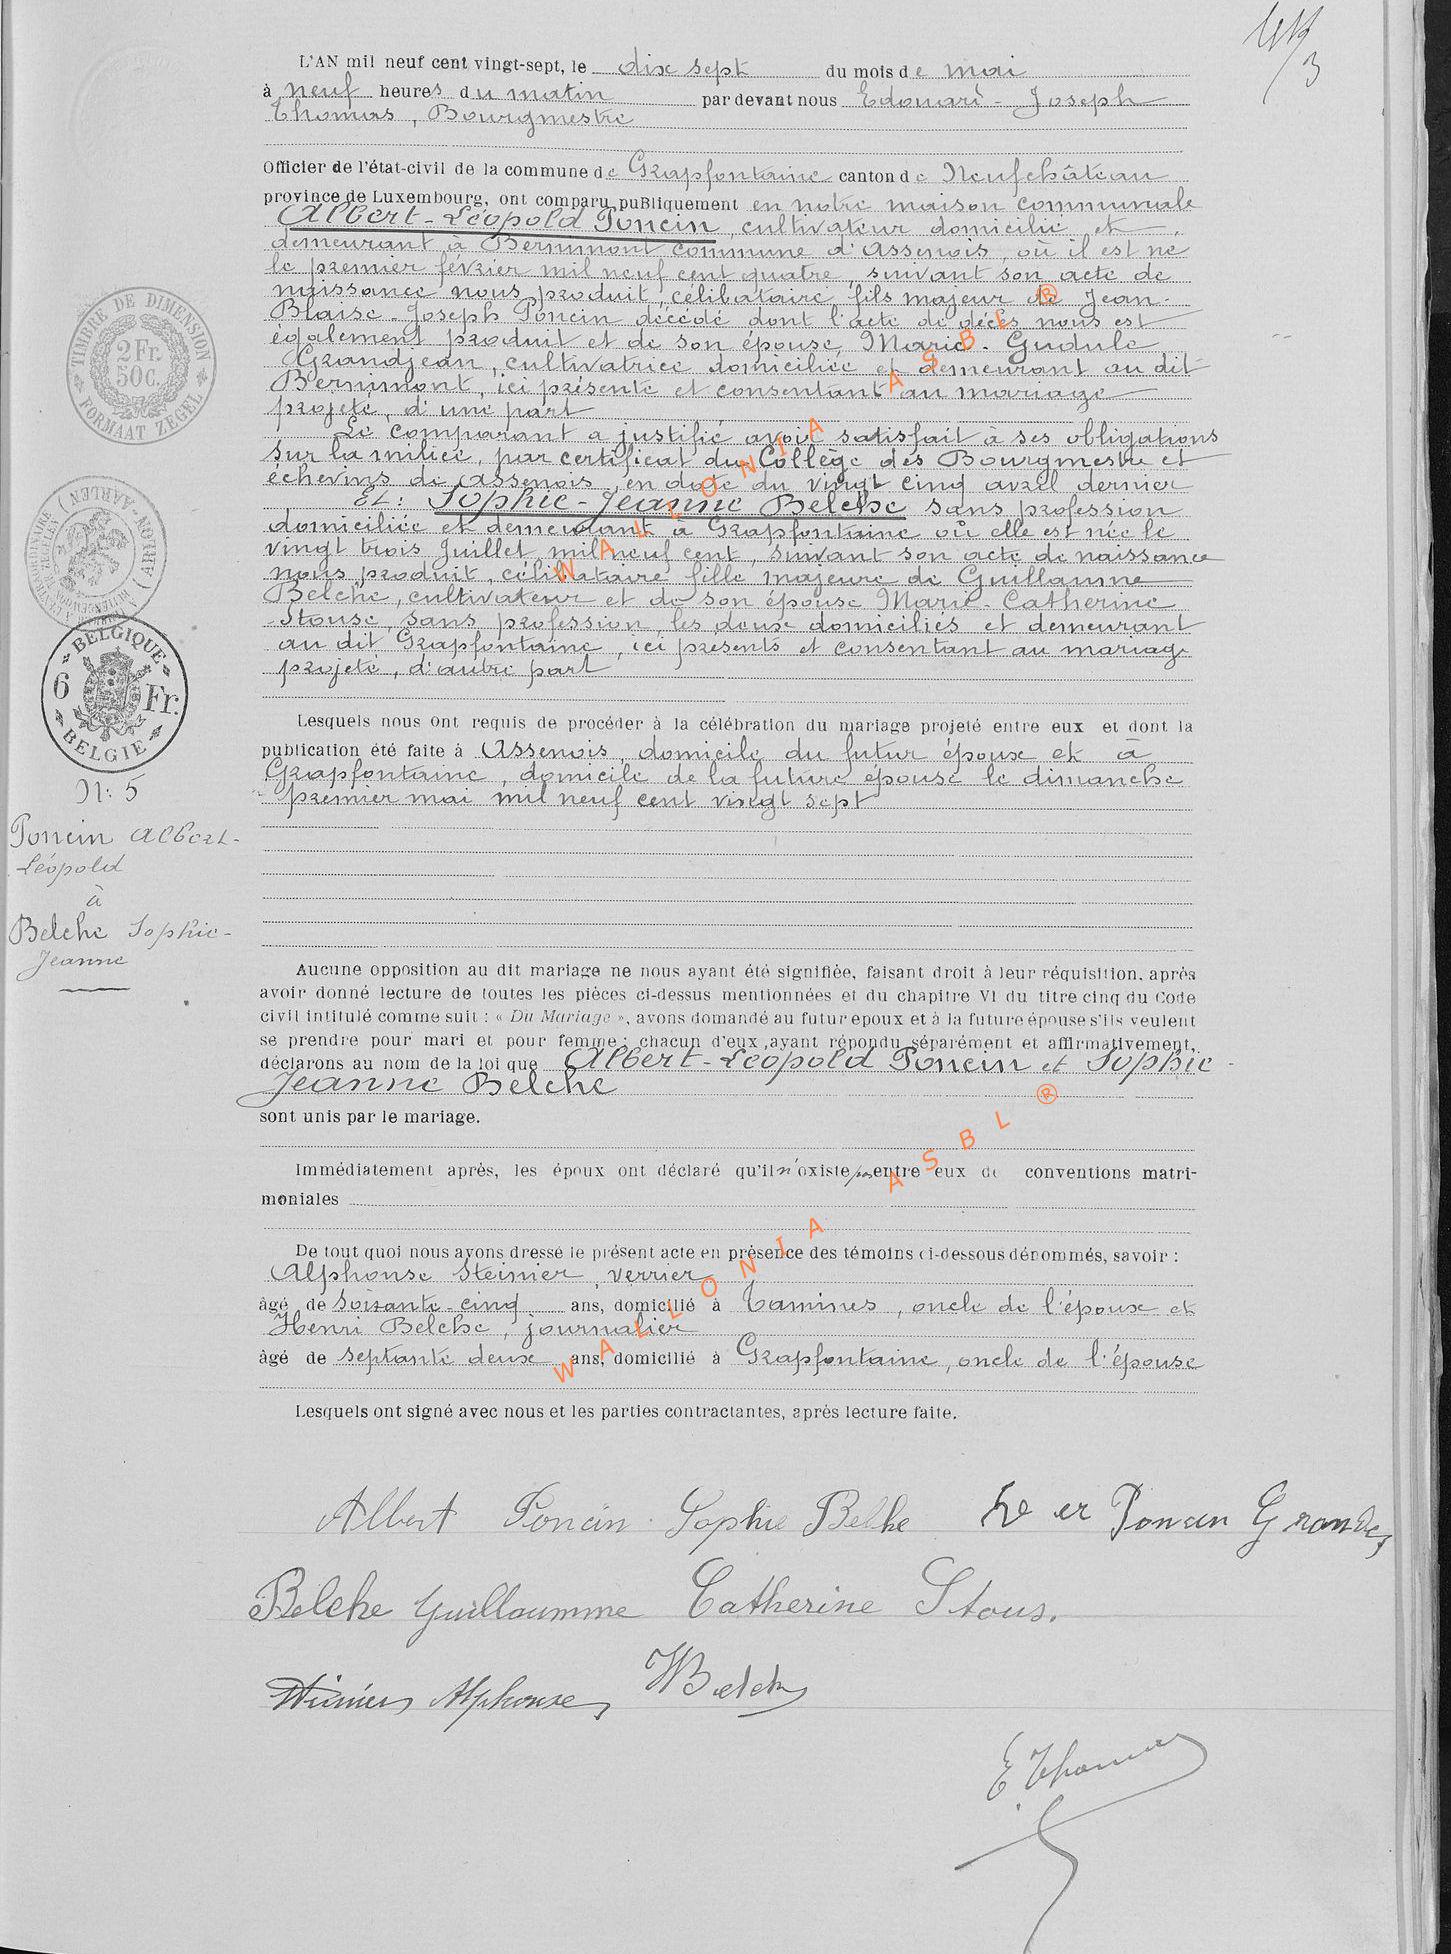 L'AN mil neuf cent vingt-sept, le dix sept du mois de mai
à neuf heures du matin par devant nous Edouard - Joseph
Thomas, Bourgmestre
Officier de l'état-civil de la commune de Grapfontaine canton de Neufchâteau
province de Luxembourg, ont comparu publiquement en notre maison communale
Albert-Léopold Poncin, cultivateur domicilié et
demeurant à Bernimont commune d'Assenois, où il est né
le premier février mil neuf cent quatre, suivant son acte de
naissance nous produit, célibataire fils majeur de Jean-
Blaise-Joseph Poncin décédé dont l'acte de décès nous est
également produit et de son épouse Marie-Gudule
Grandjean, cultivatrice domiciliée et demeurant au dit
Bernimont, ici présente et consentant au mariage
projeté, d'une part
Le comparant a justifié avoir satisfait à ses obligations
sur la milice, par certificat du Collège des Bourgmestre et
échevins de Assenois, en date du vingt cinq avril dernier
Et: Sophie-Jeanne Belche sans profession
domiciliée et demeurant à Grapfontaine où elle est née le
vingt trois Juillet mil neuf cent, suivant son acte de naissance
nous produit, célibataire fille majeure de Guillaume
Belche, cultivateur et de son épouse Marie-Catherine
Stouse, sans profession, les deux domiciliés et demeurant
au dit Grapfontaine, ici présents et consentant au mariage
projeté, d'autre part
Lesquels nous ont requis de procéder à la célébration du mariage projeté entre eux et dont la
publication été faite à Assenois, domicile du futur époux et à
Grapfontaine, domicile de la future épouse le dimanche
premier mai mil neuf cent vingt sept
Aucune opposition au dit mariage ne nous ayant été signifiée, faisant droit à leur réquisition, après
avoir donné lecture de toutes les pièces ci-dessus mentionnées et du chapitre VI du titre cinq du Code
civil intitulé comme suit : « Du Mariage », avons demandé au futur epoux et à la future épouse s'ils veulent
se prendre pour mari et pour femme ; chacun d'eux ,ayant répondu séparément et affirmativement,
déclarons au nom de la loi que Albert-Léopold Poncin et Sophie-
Jeanne Belche
sont unis par le mariage.
Immédiatement après, les époux ont déclaré qu'il n'existe pas entre eux de conventions matri-
moniales
De tout quoi nous avons dressé le présent acte en présence des témoins ci-dessous dénommés, savoir :
Alphonse Steinier, verrier
âgé de soixante-cinq ans, domicilié à Tamines, oncle de l'époux et
Henri Belche, journalier
âgé de septante deux ans, domicilié à Grapfontaine, oncle de l'épouse
Lesquels ont signé avec nous et les parties contractantes, après lecture faite.
Albert Poncin Sophie Belche Poncin
Belche Guillaumme Catherine Stous.
Alphonse
E Thomas
TIMBRE DE DIMENSION
2 Fr.
50 c.
FORMAAT ZEGEL
BELGIQUE
6 Fr.
BELGIE
N: 5
Poncin Albert-
Léopold
à
Belche Sophie-
Jeanne
WALLONIA ASBL ®
WALLONIA ASBL ®